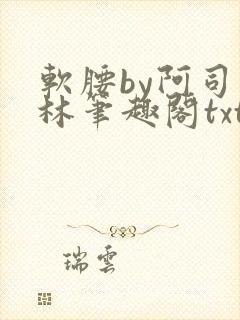 軟腰by阿司
林筆趣閣txt
瑞雲